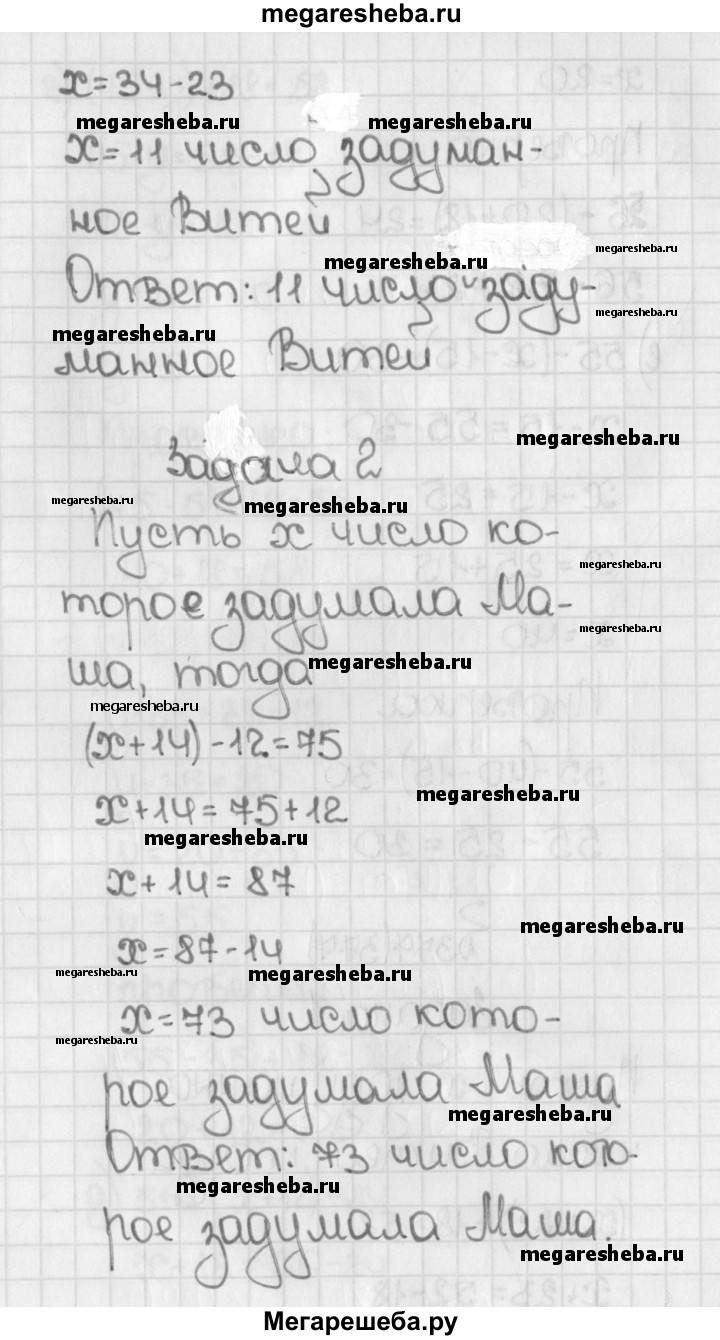 megaresheba.ru
x=34-23
megaresheba.ru megaresheba.ru
x=11 число задуман-
ное Витей
megaresheba.ru
megaresheba.ru
Ответ: 11 число заду-
megaresheba.ru
megaresheba.ru
манное Витей
megaresheba.ru
Задача 2
megaresheba.ru
megaresheba.ru
Пусть x число ко-
megaresheba.ru
торое задумала Ма-
megaresheba.ru
ша, тогда
megaresheba.ru
megaresheba.ru
(x+14)-12=75
megaresheba.ru
x+14=75+12
megaresheba.ru
x+14=87
megaresheba.ru
x=87-14
megaresheba.ru
megaresheba.ru
x=73 число кото-
megaresheba.ru
рое задумала Маша
megaresheba.ru
Ответ: 73 число кото-
megaresheba.ru
рое задумала Маша.
megaresheba.ru
Мегарешеба.ру